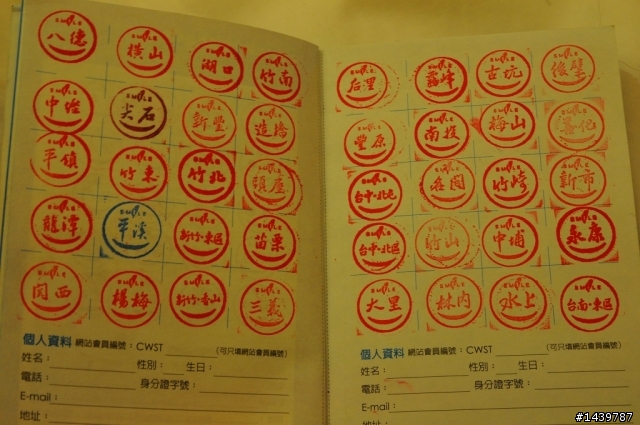 八德 橫山 湖口 竹南
中壢 尖石 新豐 造橋
平鎮 竹東 竹北 頭屋
龍潭 平溪 新竹·東區 苗栗
関西 楊梅 新竹·香山 三義
個人資料 網站會員編號：CWST ______ (可只填網站會員編號)
姓名： 性別： 生日：
電話： 身分證字號：
E-mail：
地址：
后里 霧峰 古坑 後壁
豐原 南投 梅山 善化
台中·北屯 名間 竹崎 新市
台中·北區 竹山 中埔 永康
大里 林內 水上 台南·東區
個人資料 網站會員編號：CWST ______ (可只填網站會員編號)
姓名： 性別： 生日：
電話： 身分證字號：
E-mail：
地址：
#1439787